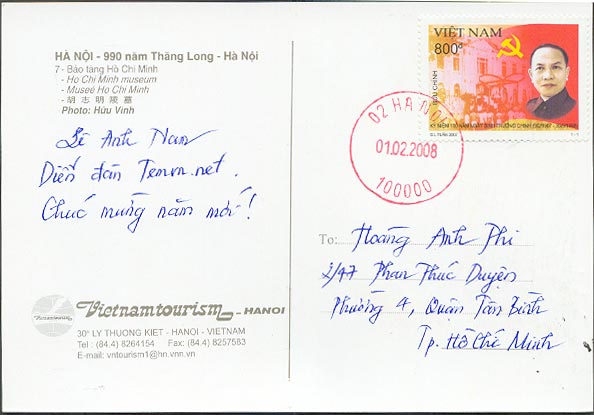 HÀ NỘI - 990 năm Thăng Long - Hà Nội
7 - Bảo tàng Hồ Chí Minh
- Ho Chi Minh museum
- Musée Ho Chi Minh
- 胡志明陵墓
Photo: Hữu Vinh
Lê Anh Nam
Diễn đàn Temvn.net.
Chúc mừng năm mới!
Vietnamtourism - HANOI
30A LY THUONG KIET - HANOI - VIETNAM
Tel : (84.4) 8264154 Fax: (84.4) 8257583
E-mail: vntourism1@hn.vnn.vn
VIỆT NAM
800đ
BƯU CHÍNH
02 HA NOI
01.02.2008
100000
To: Hoàng Anh Phi
2/47 Phan Thúc Duyện
Phường 4, Quận Tân Bình
Tp. Hồ Chí Minh